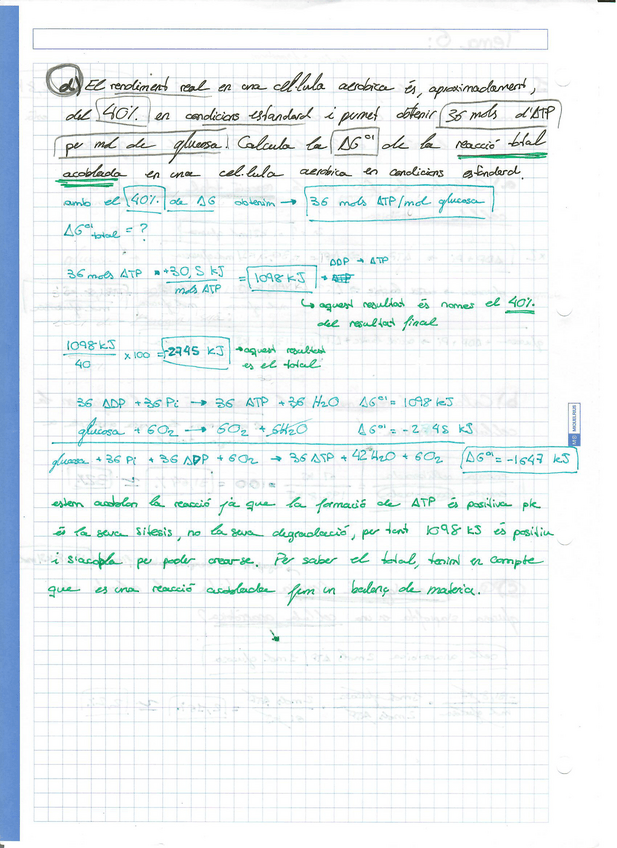 d) El rendiment real en una cèl·lula aeròbica és, aproximadament,
del 40% en condicions estàndard i permet obtenir 36 mols d'ATP
per mol de glucosa. Calcula la ΔG°' de la reacció total
acoblada en una cèl·lula aeròbica en condicions estàndard.
amb el 40% de ΔG obtenim → 36 mols ATP/mol glucosa
ΔG°' total = ?
ADP → ATP
36 mols ATP * +30,5 kJ / mols ATP = 1098 kJ →
↳ aquest resultat és només el 40%
del resultat final
1098 kJ / 40 x 100 = -2745 kJ → aquest resultat
és el total
36 ADP + 36 Pi → 36 ATP + 36 H2O ΔG°' = 1098 kJ
glucosa + 6O2 → 6O2 + 6H2O ΔG°' = -2 45 kJ
glucosa + 36 Pi + 36 ADP + 6O2 → 36 ATP + 42 H2O + 6O2 ΔG°' = -1647 kJ
estem acoblan la reacció ja que la formació de ATP és positiva pk
és la seva sítesis, no la seva degradació, per tant 1098 kJ és positiu
i s'acopla per poder crearse. Per saber el total, tenint en compte
que es una reacció acoblada fem un balanç de materia.